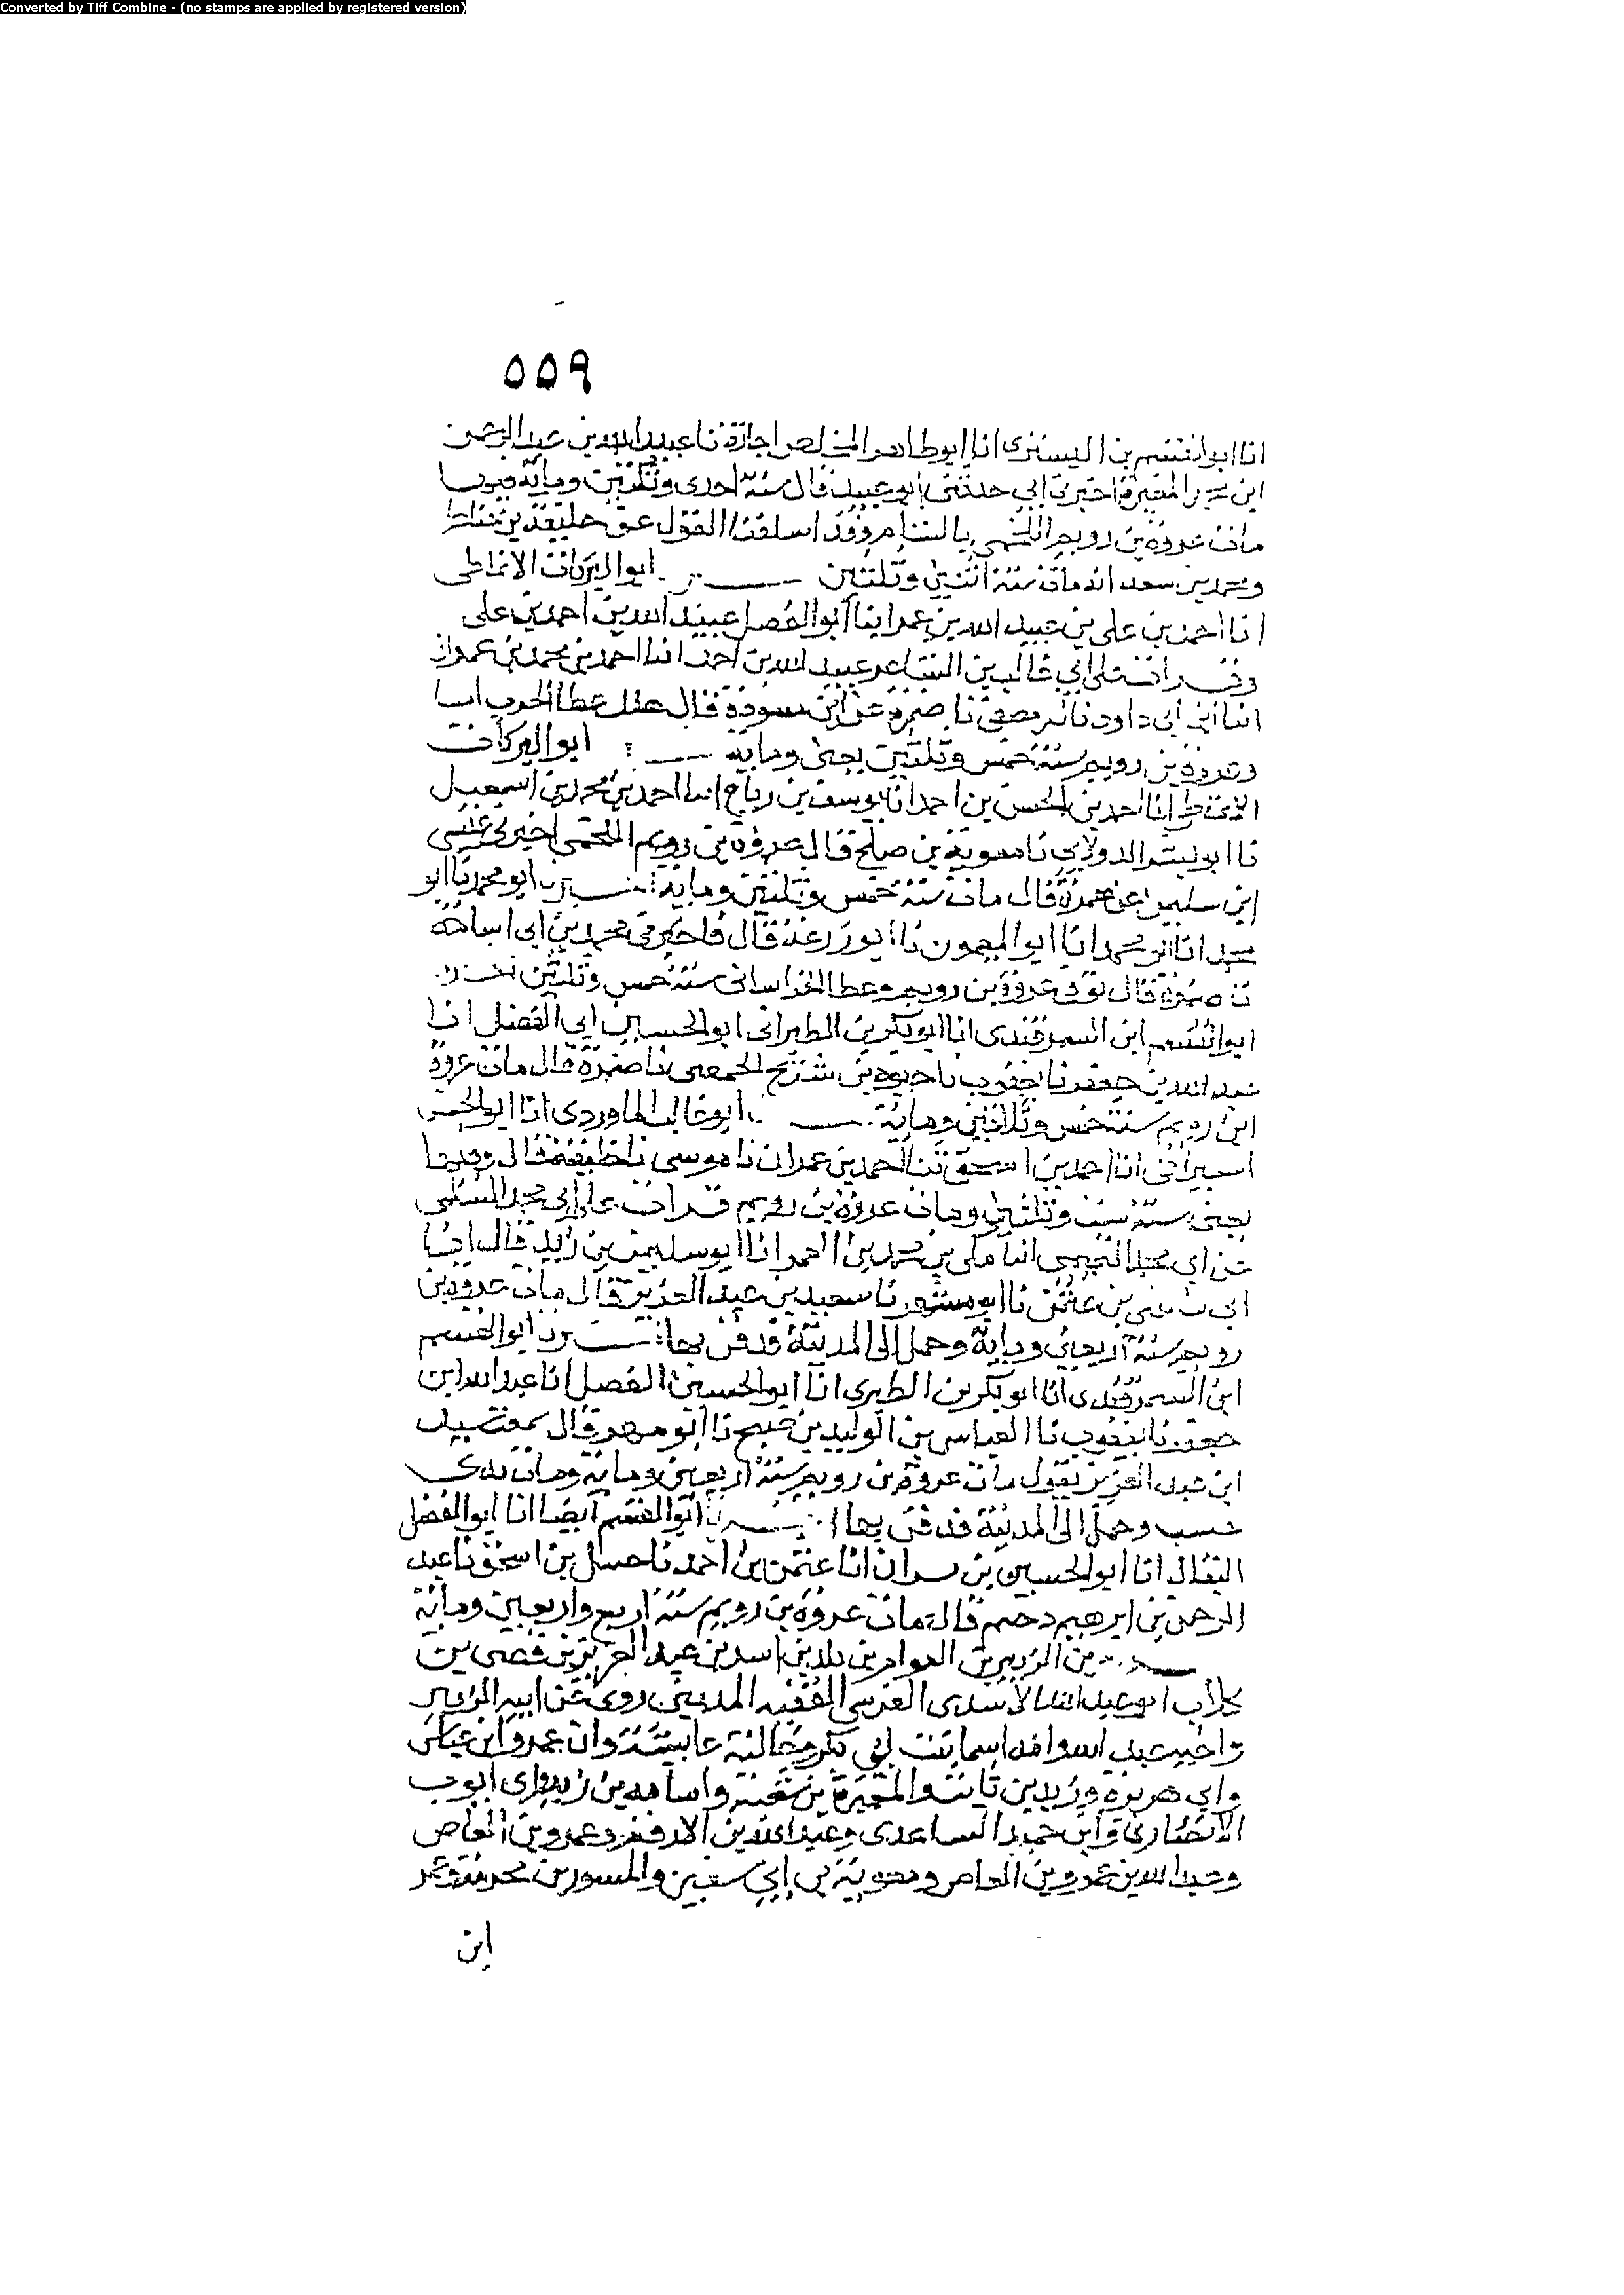 Converted by Tiff Combine - (no stamps are applied by registered version)
٥٥٩
انا ابو القسم بن البسرى انا ابو طاهر المخلص اجازة نا عبيد الله بن عبد الرحمن
ابن محمد بن المغيرة اخبرنى ابى حدثنى ابو عبيد قال سنة احدى وثلثين وماية فيها
مات عروة بن رويم اللخمى بالشام وقد اسلفنا القول عن خليفة بن خياط
ومحمد بن سعد انه مات سنة اثنتين وثلثين ابو البركات الانماطى
انا احمد بن على بن عبيد الله بن عمر انا ابو الفضل عبيد الله بن احمد بن على
وقرات على ابى غالب بن البنا عن عبيد الله بن احمد انا احمد بن محمد بن عمران
انا ابن ابى داود نا نا ضمرة عن ابن قال هلك عطا الخراسانى
وعروة بن رويم سنة خمس وثلثين يعنى وماية ابو البركات
الانماطى انا احمد بن الحسن بن احمد انا يوسف بن رباح انا احمد بن محمد بن اسمعيل
نا ابو بشر الدولابى نا معوية بن صلح قال عروة بن رويم اللخمى اخبرنى عيسى
ابن سليمن عن ضمرة قال مات سنة خمس وثلثين وماية ابو محمد نا ابو
محمد انا ابو محمد انا ابو الميمون نا ابو زرعة قال فاخبرنى محمد بن ابى اسامة
نا ضمرة قال توفى عروة بن رويم وعطا الخراسانى سنة خمس وثلثين
ابو القسم ابن السمرقندى انا ابو بكر بن الطبرانى ابو الحسين ابى الفضل انا
عبد الله بن جعفر نا يعقوب نا حيوة بن شريح الحمصى نا ضمرة قال مات عروة
ابن رويم سنة خمس وثلاثين وماية ابو غالب الماوردى انا ابو الحسن
السيرافى انا احمد بن اسحق نا احمد بن عمران نا موسى نا خليفة قال وفيها
يعنى سنة ست وثلثين ومات عروة بن رويم قرات على ابى محمد السلمى
عن ابى محمد التميمى انا مكى بن محمد بن الغمر انا ابو سليمن بن زبر قال
ابى نا بن نا ابو مسهر نا سعيد بن عبد العزيز قال مات عروة بن
رويم سنة اربعين وماية وحمل الى المدينة فدفن بها ابو القسم
ابن السمرقندى انا ابو بكر بن الطبرى انا ابو الحسين الفضل انا عبد الله ابن
جعفر نا يعقوب نا العباس بن الوليد بن صبح نا ابو مسهر قال سمعت سعيد
ابن عبد العزيز يقول مات عروة بن رويم سنة اربعين وماية ومات بذى
خشب وحمل الى المدينة فدفن بها ابو القسم ايضا انا ابو الفضل
البقال انا ابو الحسين بن بشران انا عثمن بن احمد نا حنبل بن اسحق نا عبد
الرحمن بن ابرهيم دحيم قال مات عروة بن رويم سنة اربع واربعين وماية
بن الزبير بن العوام بن خويلد بن اسد بن عبد العزى بن قصى بن
كلاب ابو عبد الله الاسدى القرشى الفقيه المدينى روى عن ابيه الزبير
واخيه عبد الله وامه اسما بنت ابى بكر وخالته عايشة وابن عمر وابن عباس
وابى هريرة وزيد بن ثابت والمغيرة بن شعبة واسامة بن زيد وابى ايوب
الانصارى وابى حميد الساعدى وعبد الله بن الارقم وعمرو بن العاص
وعبد الله بن عمرو بن العاص ومعوية بن ابى سفين والمسور بن مخرمة وعمر
ابن